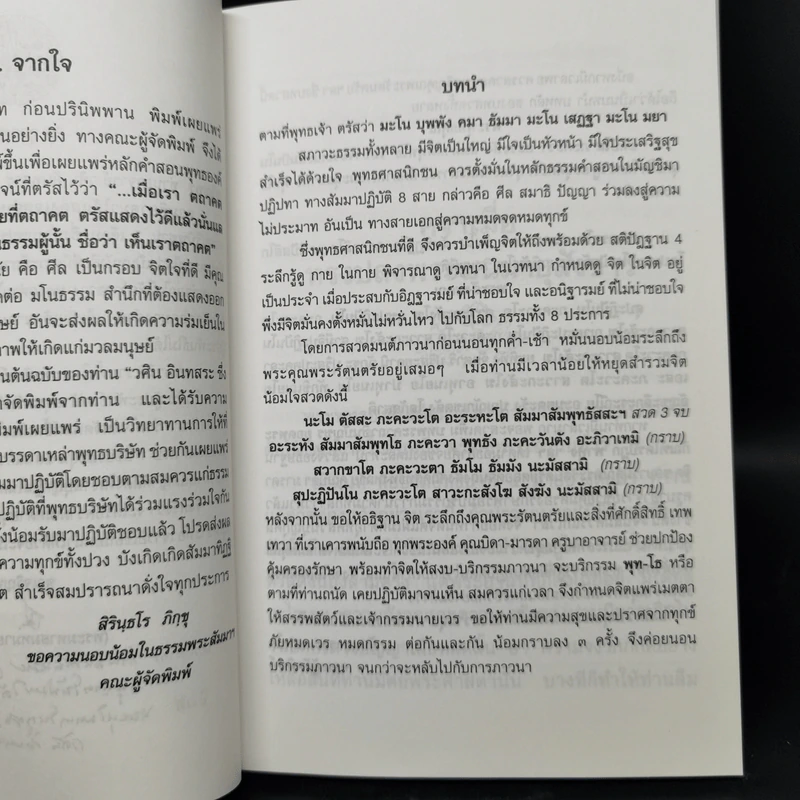 . จากใจ
ท ก่อนปรินิพพาน พิมพ์เผยแพร่
นอย่างยิ่ง ทางคณะผู้จัดพิมพ์ จึงได้
ขึ้นเพื่อเผยแพร่หลักคำสอนพุทธองค์
จน์ที่ตรัสไว้ว่า "...เมื่อเรา ตถาคต
ยที่ตถาคต ตรัสแสดงไว้ดีแล้วนั่นแล
นธรรมผู้นั้น ชื่อว่า เห็นเราตถาคต"
ย คือ ศีล เป็นกรอบ จิตใจที่ดี มีคุณ
ดต่อ มโนธรรม สำนึกที่ต้องแสดงออก
ษย์ อันจะส่งผลให้เกิดความร่มเย็นใน
าพให้เกิดแก่มวลมนุษย์
นต้นฉบับของท่าน "วศิน อินทสระ ซึ่ง
าจัดพิมพ์จากท่าน และได้รับความ
พิมพ์เผยแพร่ เป็นวิทยาทานการให้ที่
บรรดาเหล่าพุทธบริษัท ช่วยกันเผยแพร่
มมาปฏิบัติโดยชอบตามสมควรแก่ธรรม
ปฏิบัติที่พุทธบริษัทได้ร่วมแรงร่วมใจกัน
งน้อมรับมาปฏิบัติชอบแล้ว โปรดส่งผล
ความทุกข์ทั้งปวง บังเกิดเกิดสัมมาทิฏฐิ
ต สำเร็จสมปรารถนาดั่งใจทุกประการ
สิรินฺธโร ภิกฺขุ
ขอความนอบน้อมในธรรมพระสัมมาฯ
คณะผู้จัดพิมพ์
บทนำ
ตามที่พุทธเจ้า ตรัสว่า มะโน บุพพัง คมา ธัมมา มะโน เสฏฐา มะโน มยา
สภาวะธรรมทั้งหลาย มีจิตเป็นใหญ่ มีใจเป็นหัวหน้า มีใจประเสริฐสุข
สำเร็จได้ด้วยใจ พุทธศาสนิกชน ควรตั้งมั่นในหลักธรรมคำสอนในมัญชิมา
ปฏิปทา ทางสัมมาปฏิบัติ 8 สาย กล่าวคือ ศีล สมาธิ ปัญญา ร่วมลงสู่ความ
ไม่ประมาท อันเป็น ทางสายเอกสู่ความหมดจดหมดทุกข์
ซึ่งพุทธศาสนิกชนที่ดี จึงควรบำเพ็ญจิตให้ถึงพร้อมด้วย สติปัฎฐาน 4
ระลึกรู้ดู กาย ในกาย พิจารณาดู เวทนา ในเวทนา กำหนดดู จิต ในจิต อยู่
เป็นประจำ เมื่อประสบกับอิฎฐารมย์ ที่น่าชอบใจ และอนิฐารมย์ ที่ไม่น่าชอบใจ
พึ่งมีจิตมั่นคงตั้งหมั่นไม่หวั่นไหว ไปกับโลก ธรรมทั้ง 8 ประการ
โดยการสวดมนต์ภาวนาก่อนนอนทุกค่ำ-เช้า หมั่นนอบน้อมระลึกถึง
พระคุณพระรัตนตรัยอยู่เสมอๆ เมื่อท่านมีเวลาน้อยให้หยุดสำรวมจิต
น้อมใจสวดดังนี้
นะโม ตัสสะ ภะคะวะโต อะระหะโต สัมมาสัมพุทธัสสะฯ สวด 3 จบ
อะระหัง สัมมาสัมพุทโธ ภะคะวา พุทธัง ภะคะวันตัง อะภิวาเทมิ (กราบ)
สวากขาโต ภะคะวะตา ธัมโม ธัมมัง นะมัสสามิ (กราบ)
สุปะฏิปันโน ภะคะวะโต สาวะกะสังโฆ สังฆัง นะมัสสามิ (กราบ)
หลังจากนั้น ขอให้อธิฐาน จิต ระลึกถึงคุณพระรัตนตรัยและสิ่งที่ศักดิ์สิทธิ์ เทพ
เทวา ที่เราเคารพนับถือ ทุกพระองค์ คุณบิดา-มารดา ครูบาอาจารย์ ช่วยปกป้อง
คุ้มครองรักษา พร้อมทำจิตให้สงบ-บริกรรมภาวนา จะบริกรรม พุท-โธ หรือ
ตามที่ท่านถนัด เคยปฏิบัติมาจนเห็น สมควรแก่เวลา จึงกำหนดจิตแพร่เมตตา
ให้สรรพสัตว์และเจ้ากรรมนายเวร ขอให้ท่านมีความสุขและปราศจากทุกข์
ภัยหมดเวร หมดกรรม ต่อกันและกัน น้อมกราบลง ๓ ครั้ง จึงค่อยนอน
บริกรรมภาวนา จนกว่าจะหลับไปกับการภาวนา